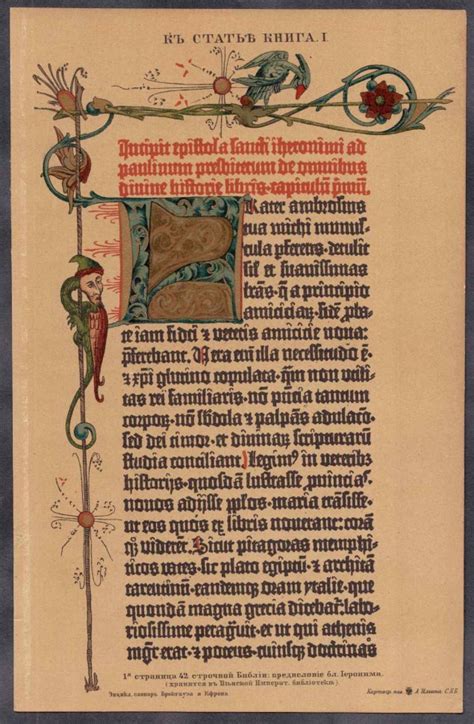 КЪ СТАТЬѢ КНИГА. I
Incipit epistola sancti iheronimi ad
paulinum presbiterum de omnibus
divine historie libris. capitulū p̄mū.
Frater ambrosius
tua michi munus-
cula ꝑferens. detulit
sil' et suavissimas
lr̄as. q̄ a principio
amiciciaꝵ. fidē ꝓba-
te iam fidei ⁊ veteris amicicie nova:
p̄ferebant. Vera eni illa necessitudo ē.
⁊ xp̄i glutino copulata. qm̄ non vtili-
tas rei familiaris. nō pn̄cia tantum
corpoꝝ. nō sb̄dola ⁊ palpās adulacō.
sed dei timor. et divinaꝝ scripturarū
studia conciliant. Legimꝰ in veteribꝫ
historijs. quosdā lustrasse ꝓvincias.
novos adijsse pp̄los. maria trāsisse.
ut eos quos ex libris noverant: coram
qꝫ viderēt. Sicut pitagoras memphi-
ticos vates. sic plato egiptū. ⁊ architā
tarentinū. eandemqꝫ oram ytalie. que
quondam magna grecia dicebat̉: labo-
riosissime peragͬvit. et ut qui athenis
mgr̄ erat. ⁊ potens. cuiusqꝫ doctrinas
1ᵃ страница 42 строчной Библіи: предисловіе бл. Іеронима.
(хранится въ Вѣнской Императ. библіотекѣ)
Энцикл. словарь Брокгауза и Ефрона
Картогр. зав. А. Ильина. С.П.Б.